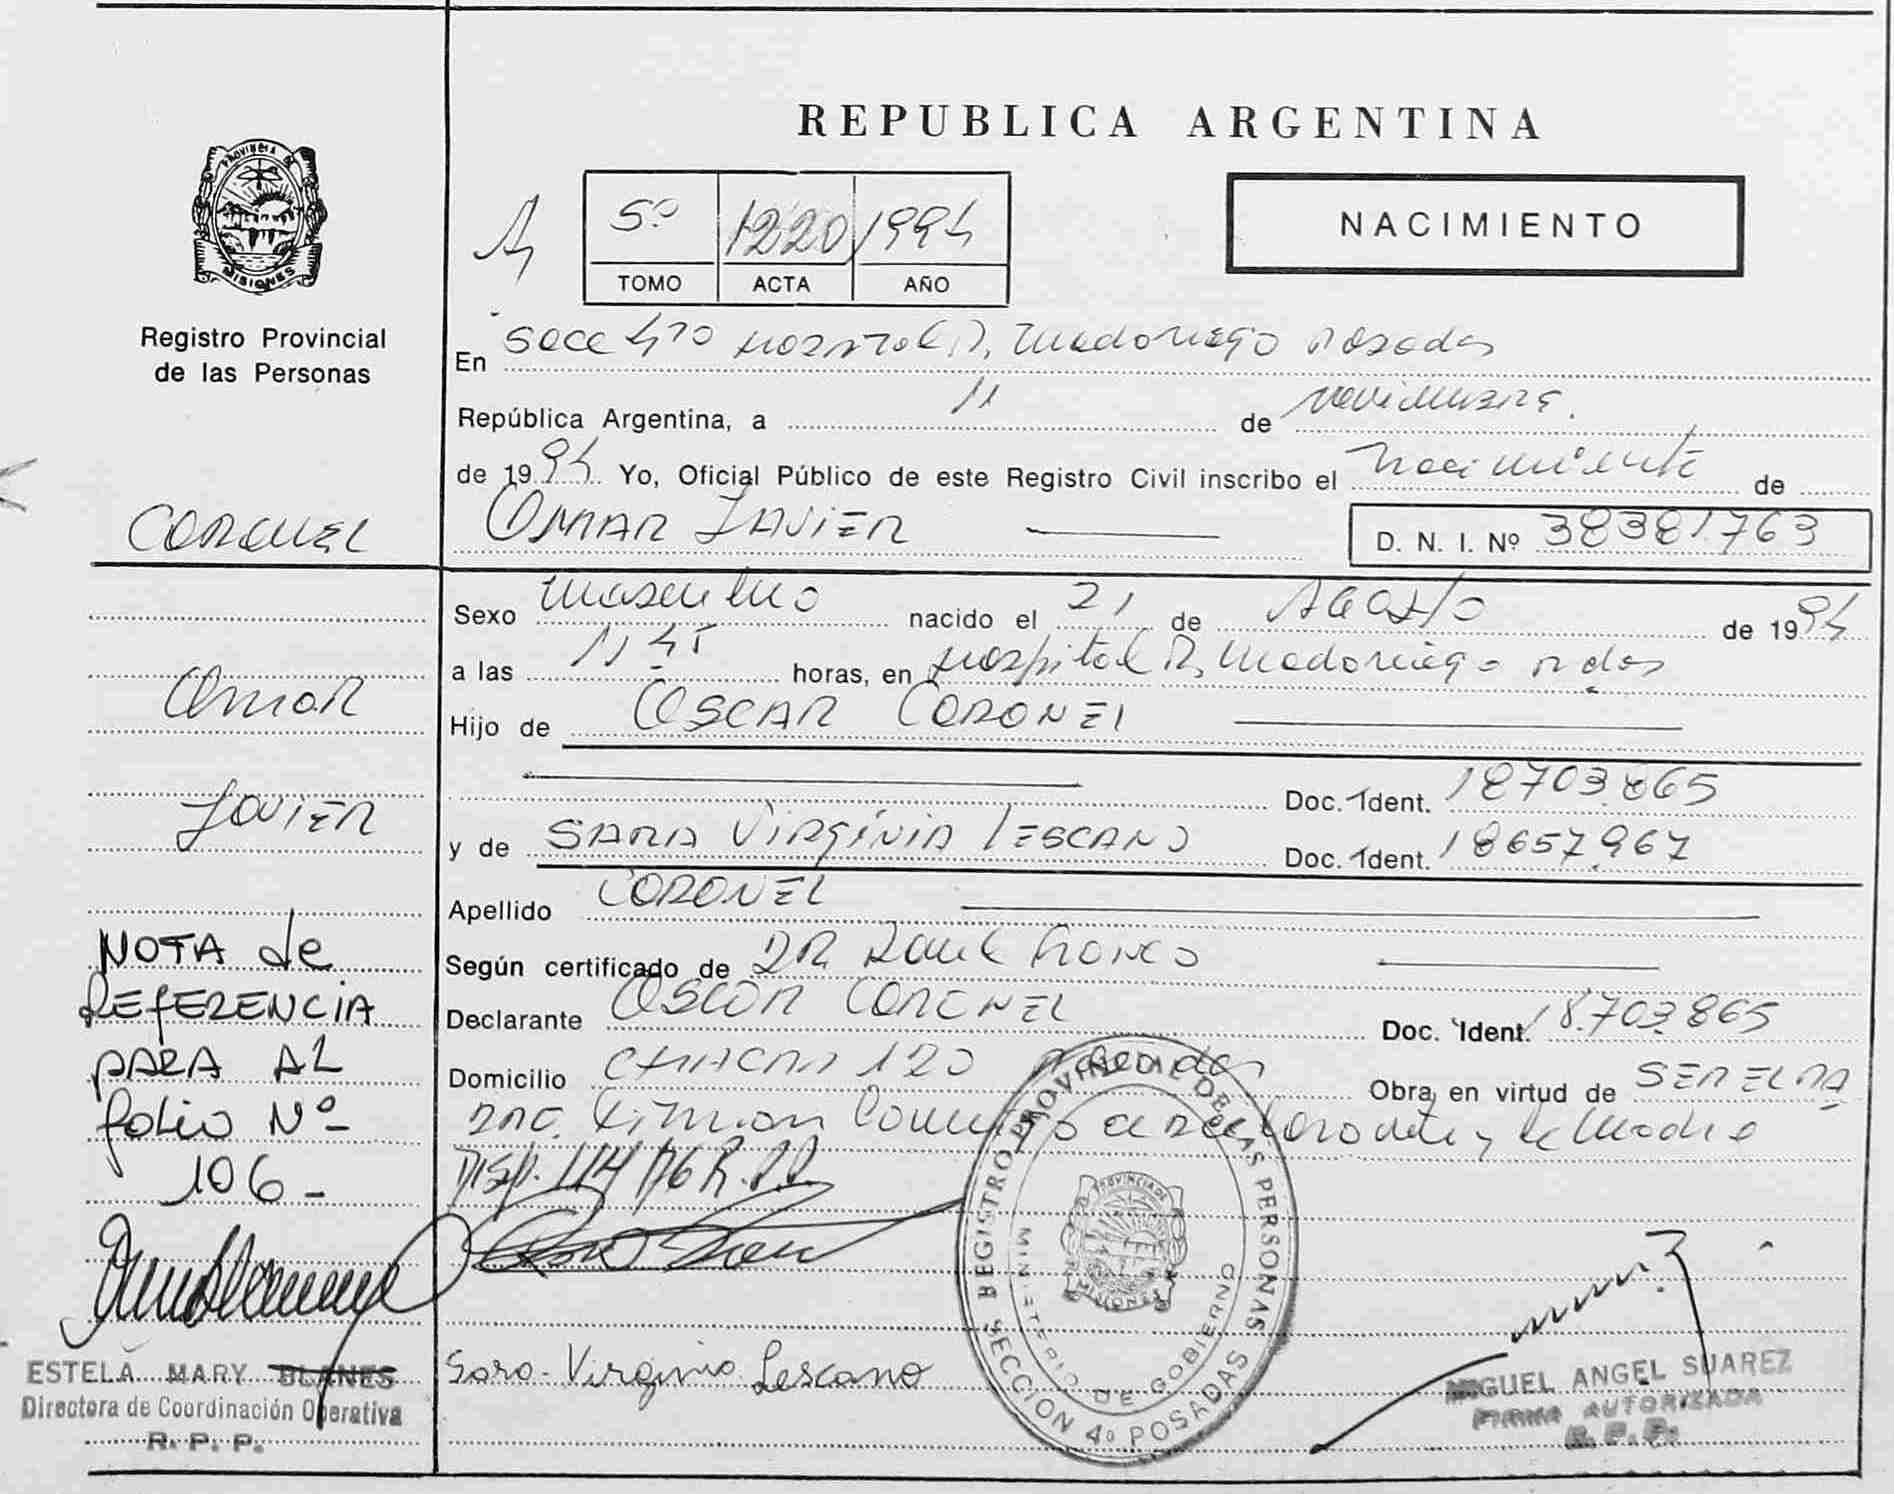 REPUBLICA ARGENTINA
PROVINCIA DE
MISIONES
Registro Provincial
de las Personas
5º 1220 1994
TOMO ACTA AÑO
NACIMIENTO
En Secc 4ta Hospital R. Madariaga Posadas
República Argentina, a 11 de noviembre.
de 1994 Yo, Oficial Público de este Registro Civil inscribo el nacimiento de
OMAR JAVIER
D. N. I. Nº 38381763
CORONEL
Omar
Javier
Sexo masculino nacido el 21 de Agosto de 1994
a las 11 45 horas, en Hospital R. Madariaga Pdas
Hijo de OSCAR CORONEL
Doc. Ident. 18703.865
y de SARA VIRGINIA LESCANO Doc. Ident. 18657.967
Apellido CORONEL
Según certificado de DR Raul
Declarante OSCAR CORONEL Doc. Ident. 18.703.865
Domicilio CHACRA 120 Posadas Obra en virtud de SER EL PA
dre. Firman el declarante y la Madre
Disp. 114/76 R.P.P.
NOTA de
REFERENCIA
PARA AL
folio Nº
106-
ESTELA MARY BLANES
Directora de Coordinación Operativa
R. P. P.
Sara Virginia Lescano
REGISTRO PROVINCIAL DE LAS PERSONAS
SECCION 4º POSADAS
MINISTERIO DE GOBIERNO
PROVINCIA DE
MISIONES
MIGUEL ANGEL SUAREZ
FIRMA AUTORIZADA
R. P. P.